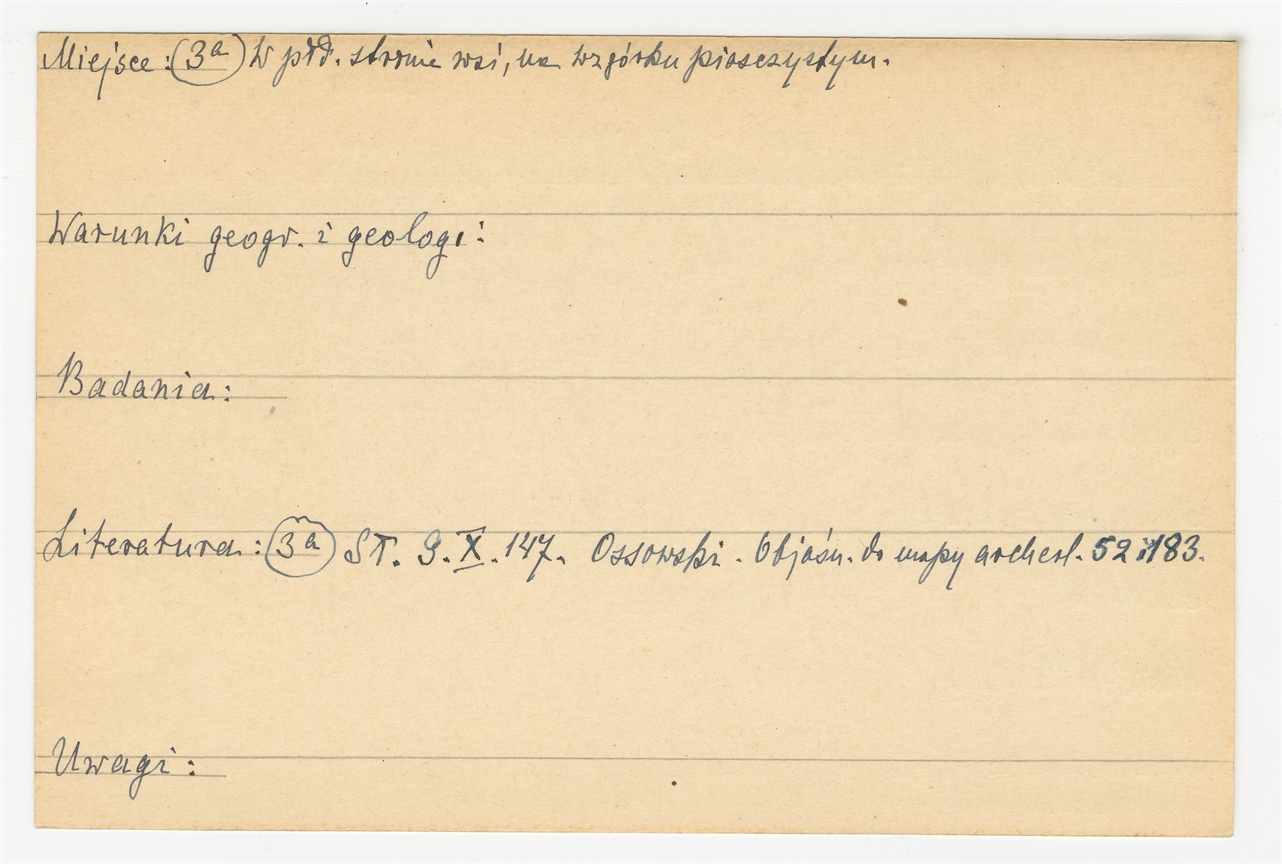 Miejsce: (3a) W płd. stronie wsi, na wzgórku piasczystym.
Warunki geogr. i geolog.:
Badania:
Literatura: (3a) ST. G. X. 147. Ossowski. Objaśn. do mapy archeol. 52 i 183.
Uwagi: